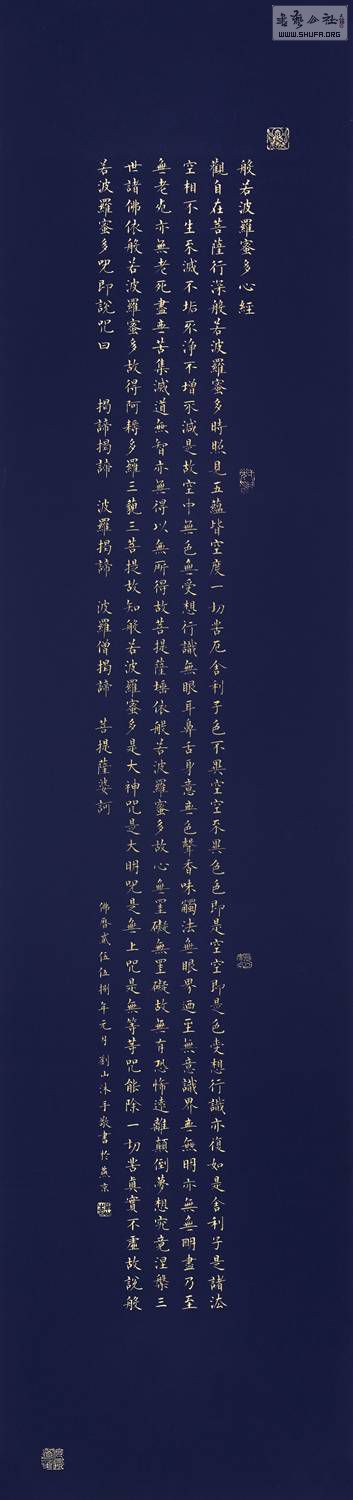 般若波羅蜜多心經
觀自在菩薩行深般若波羅蜜多時照見五蘊皆空度一切苦厄舍利子色不異空空不異色色即是空空即是色受想行識亦復如是舍利子是諸法
空相不生不滅不垢不淨不增不減是故空中無色無受想行識無眼耳鼻舌身意無色聲香味觸法無眼界迺至無意識界無無明亦無無明盡乃至
無老死亦無老死盡無苦集滅道無智亦無得以無所得故菩提薩埵依般若波羅蜜多故心無罣礙無罣礙故無有恐怖遠離顛倒夢想究竟涅槃三
世諸佛依般若波羅蜜多故得阿耨多羅三藐三菩提故知般若波羅蜜多是大神咒是大明咒是無上咒是無等等咒能除一切苦真實不虛故說般
若波羅蜜多咒即說咒曰 揭諦揭諦 波羅揭諦 波羅僧揭諦 菩提薩婆訶
佛曆貳伍伍捌年元月劉山沐手敬書於燕京
WWW.SHUFA.ORG